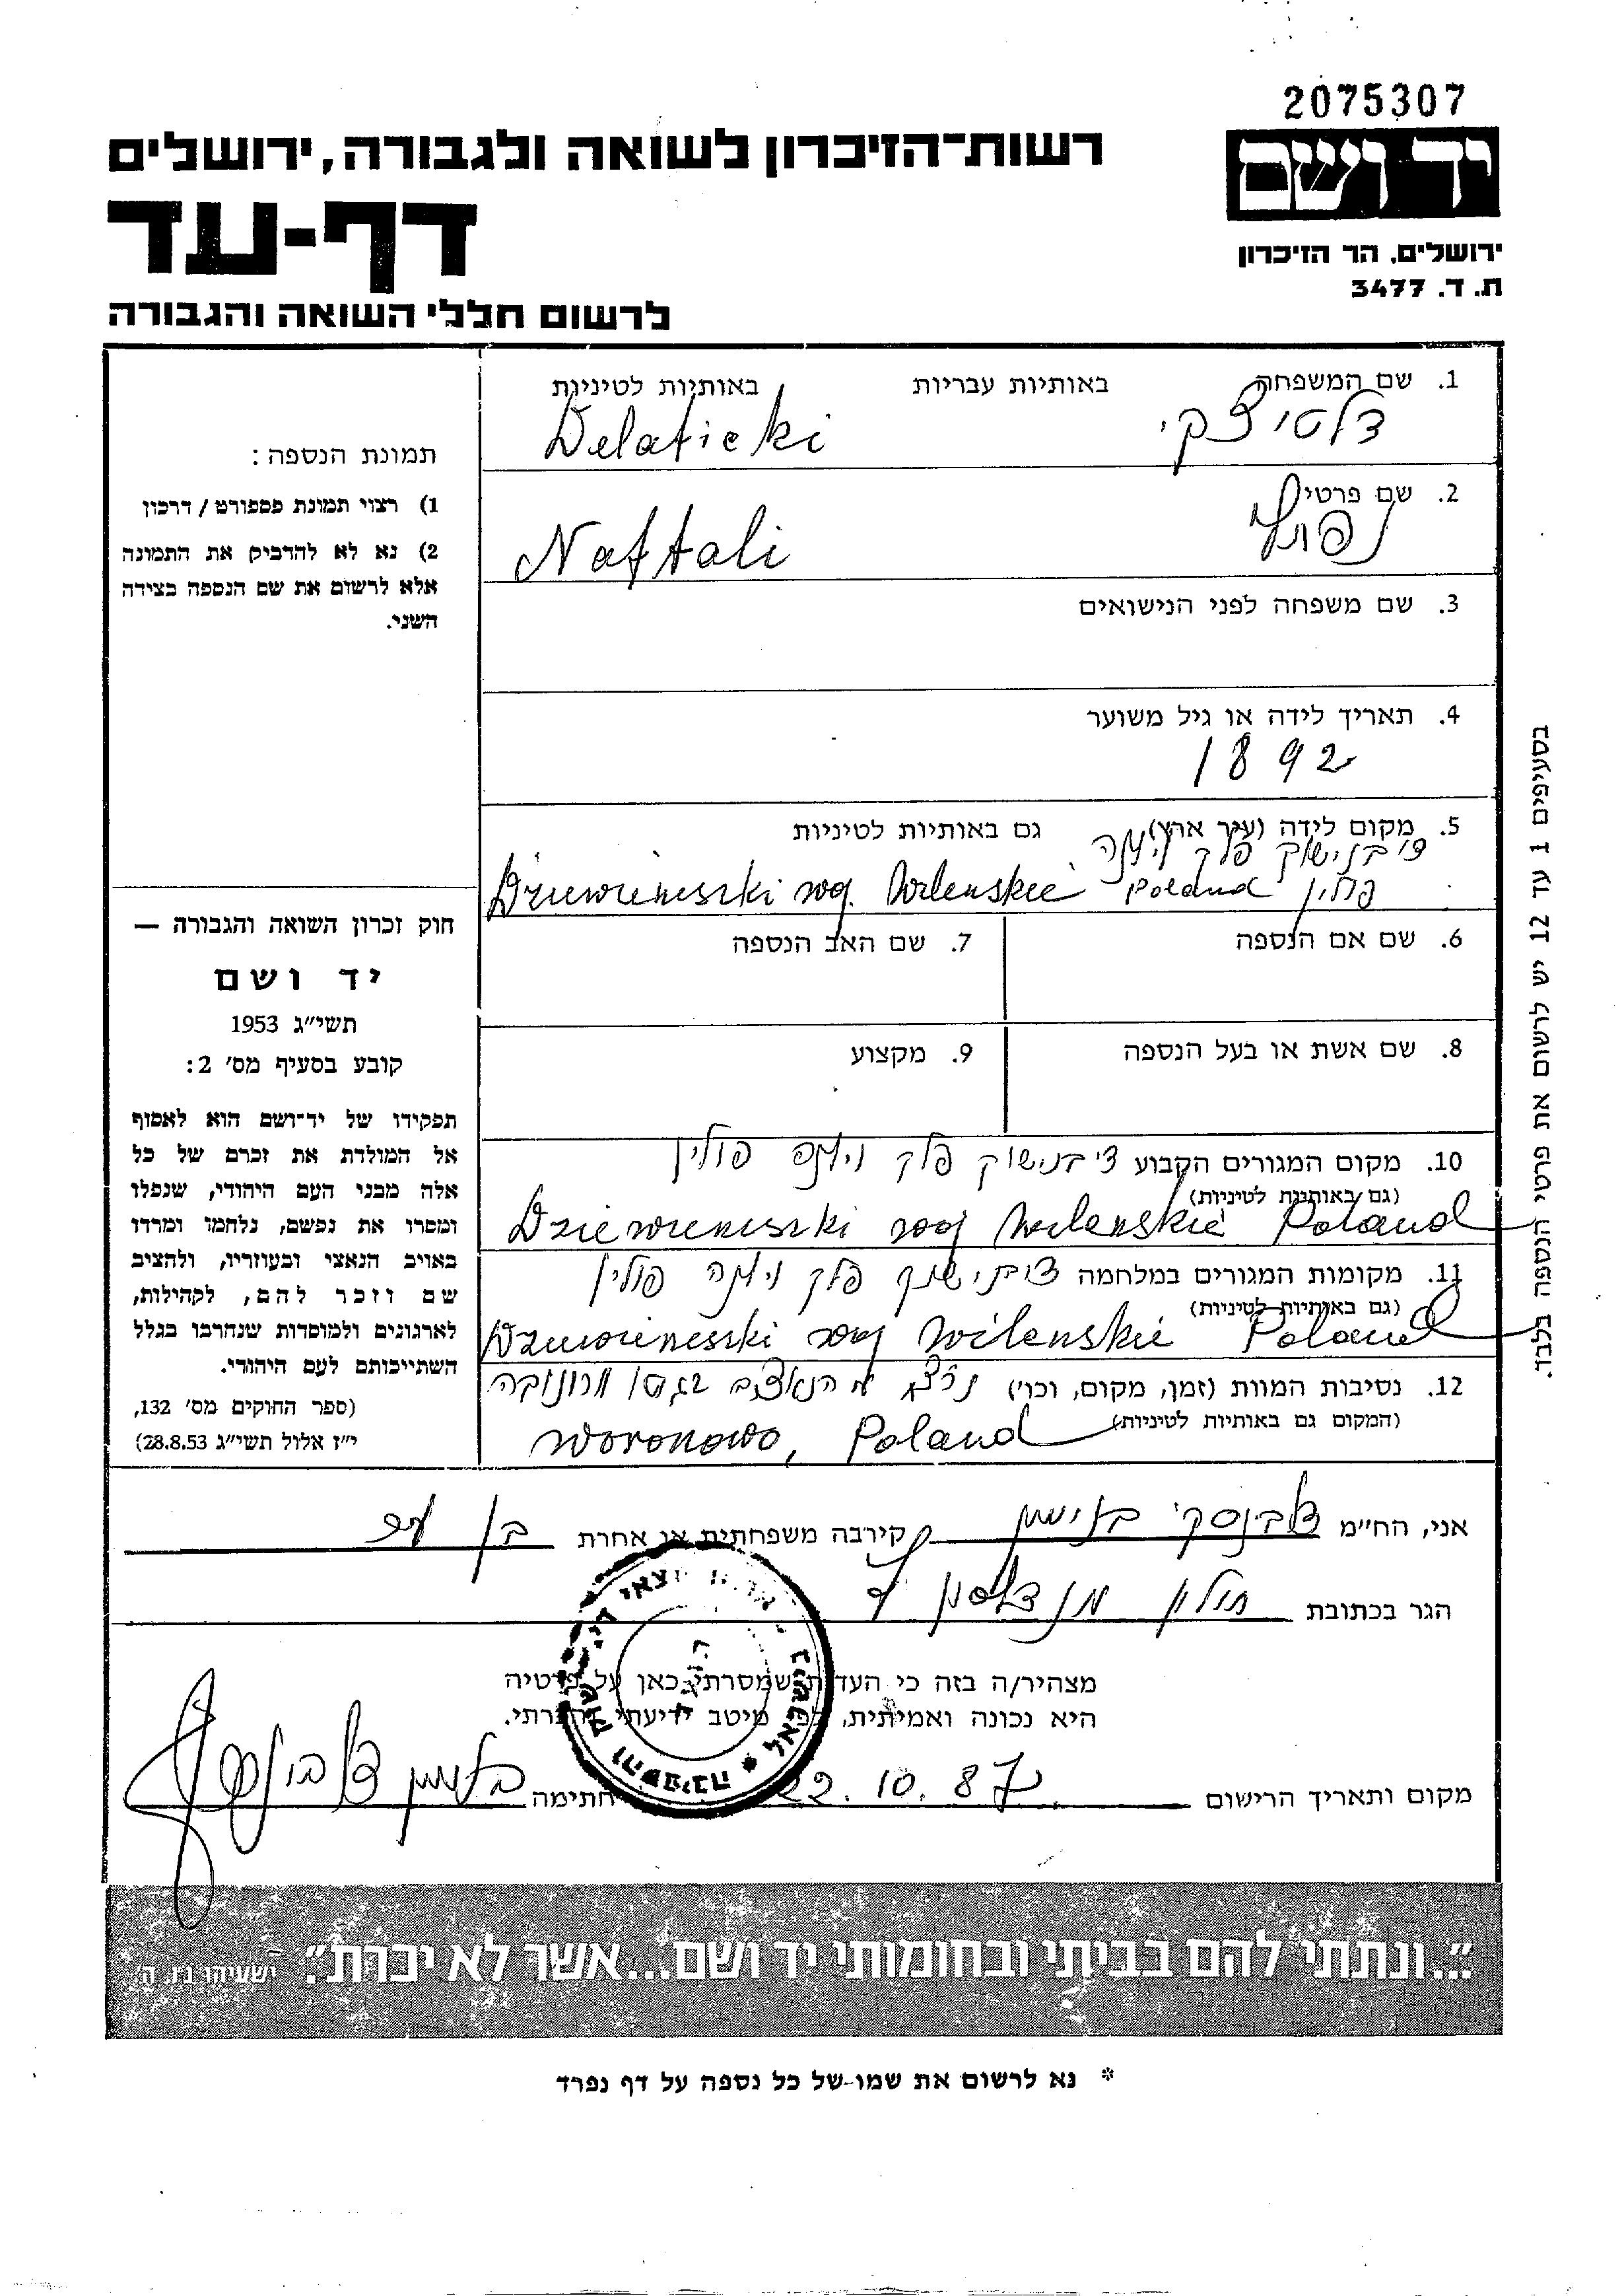 2075307
יד ושם
רשות־הזיכרון לשואה ולגבורה, ירושלים
דף-עד
ירושלים, הר הזיכרון
ת. ד. 3477
לרשום חללי השואה והגבורה
1. שם המשפחה באותיות עבריות באותיות לטיניות
דלטיצקי Delaticki
2. שם פרטי
נפתלי Naftali
3. שם משפחה לפני הנישואים
4. תאריך לידה או גיל משוער
1892
5. מקום לידה (עיר ארץ) גם באותיות לטיניות
פלך וילנה
פולין Poland Dziewieniszki woj. Wilenskie
6. שם אם הנספה
7. שם האב הנספה
8. שם אשת או בעל הנספה
9. מקצוע
10. מקום המגורים הקבוע פלך וילנה פולין
(גם באותיות לטיניות)
Dziewieniszki woj Wilenskie Poland
11. מקומות המגורים במלחמה פלך וילנה פולין
(גם באותיות לטיניות)
Dziewieniszki woj Wilenskie Poland
12. נסיבות המוות (זמן, מקום, וכו׳) נרצח
(המקום גם באותיות לטיניות)
Woronowo, Poland
תמונת הנספה:
1) רצוי תמונת פספורט / דרכון
2) נא לא להדביק את התמונה
אלא לרשום את שם הנספה בצידה
השני.
חוק זכרון השואה והגבורה —
יד ושם
תשי״ג 1953
קובע בסעיף מס׳ 2:
תפקידו של יד־ושם הוא לאסוף
אל המולדת את זכרם של כל
אלה מבני העם היהודי, שנפלו
ומסרו את נפשם, נלחמו ומרדו
באויב הנאצי ובעוזריו, ולהציב
שם וזכר להם, לקהילות,
לארגונים ולמוסדות שנחרבו בגלל
השתייכותם לעם היהודי.
(ספר החוקים מס׳ 132,
י״ז אלול תשי״ג 28.8.53)
בסעיפים 1 עד 12 יש לרשום את פרטי הנספה בלבד.
אני, החי״מ קירבה משפחתית או אחרת בן
הגר בכתובת חולון
מצהיר/ה בזה כי העדות שמסרתי כאן על פרטיה
היא נכונה ואמיתית, לפי מיטב ידיעתי והכרתי.
מקום ותאריך הרישום 22.10.87 חתימה
"...ונתתי להם בביתי ובחומותי יד ושם...אשר לא יכרת". ישעיהו נ״ו, ה׳
* נא לרשום את שמו של כל נספה על דף נפרד